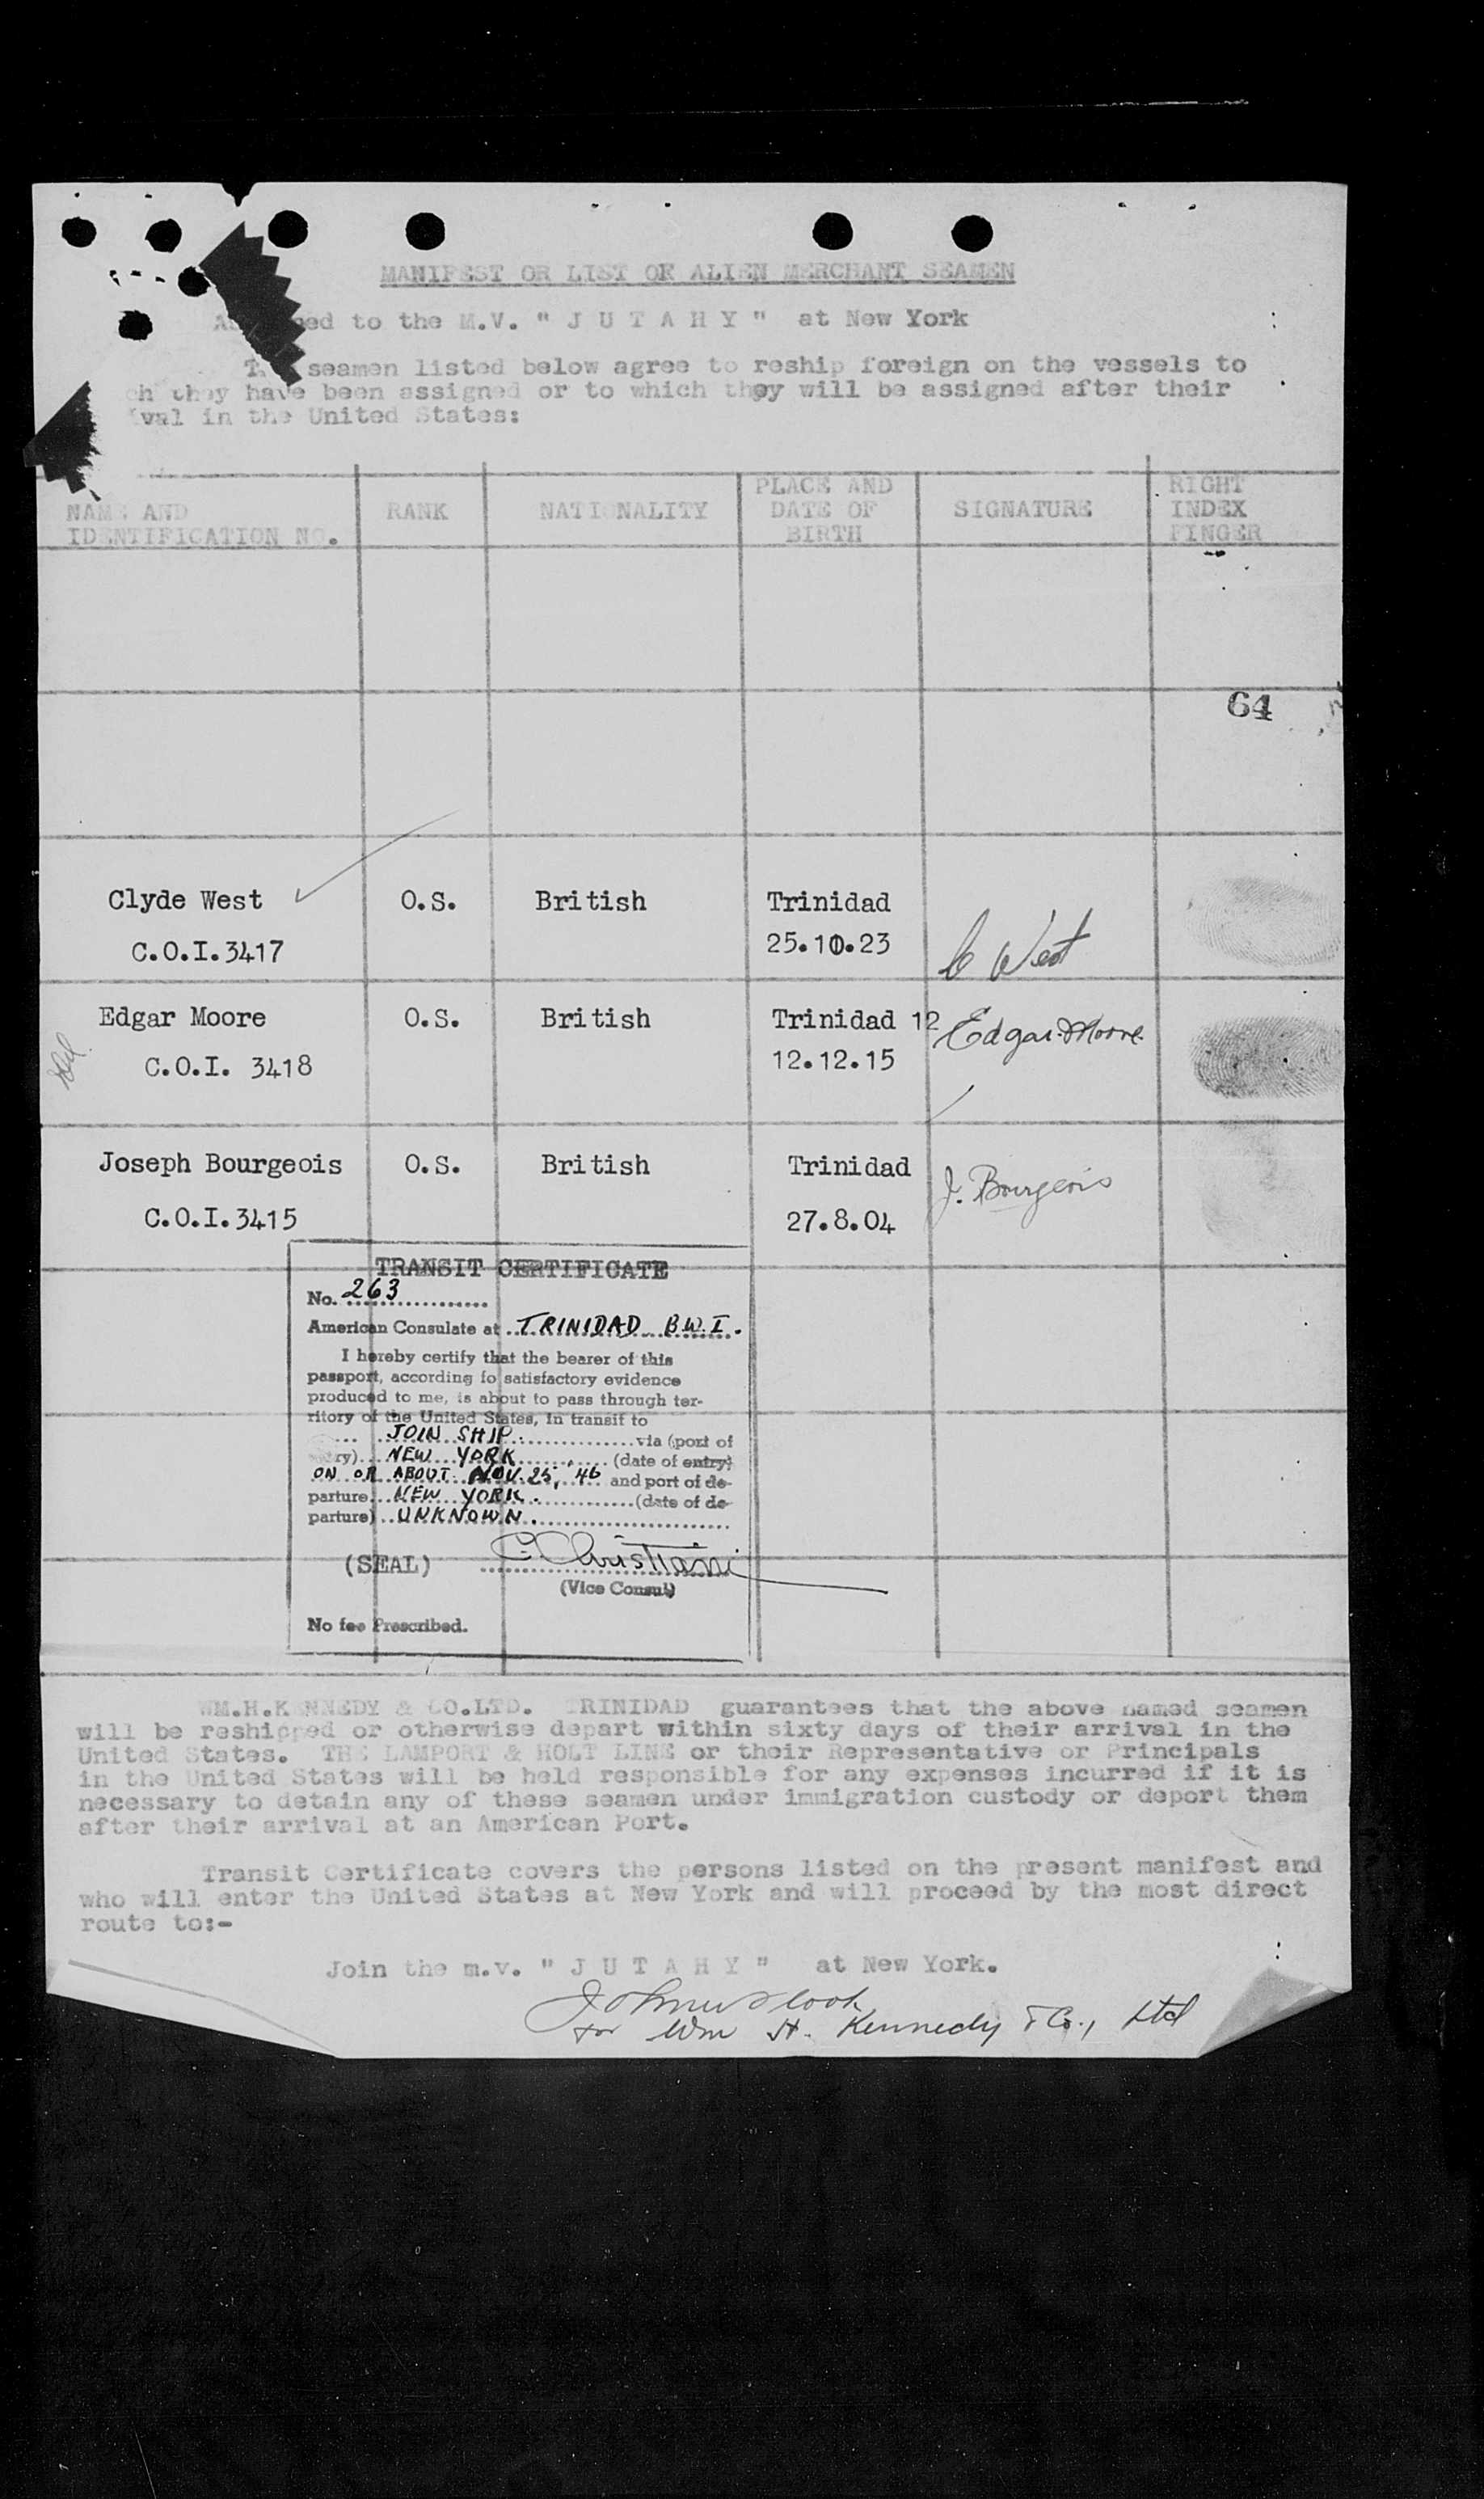 MANIFEST OR LIST OF ALIEN MERCHANT SEAMEN
ed to the M.V. " J U T A H Y " at New York
seamen listed below agree to reship foreign on the vessels to
ch they have been assigned or to which they will be assigned after their
ival in the United States:
NAME AND IDENTIFICATION NO.
RANK
NATIONALITY
PLACE AND DATE OF BIRTH
SIGNATURE
RIGHT INDEX FINGER
64
Clyde West O.S. British Trinidad
C.O.I.3417 25.10.23 C West
Edgar Moore O.S. British Trinidad 12 Edgar Moore
C.O.I. 3418 12.12.15
Joseph Bourgeois O.S. British Trinidad J. Bourgeois
C.O.I.3415 27.8.04
TRANSIT CERTIFICATE
No. 263
American Consulate at TRINIDAD B.W.I.
I hereby certify that the bearer of this
passport, according to satisfactory evidence
produced to me, is about to pass through ter-
ritory of the United States, in transit to
JOIN SHIP. via (port of
ry) NEW YORK, (date of entry)
ON OR ABOUT NOV. 25, 46 and port of de-
parture NEW YORK. (date of de-
parture) UNKNOWN.
(SEAL) C. Christiani
(Vice Consul)
No fee Prescribed.
WM.H.KENNEDY & CO.LTD. TRINIDAD guarantees that the above named seamen
will be reshipped or otherwise depart within sixty days of their arrival in the
United States. THE LAMPORT & HOLT LINE or their Representative or Principals
in the United States will be held responsible for any expenses incurred if it is
necessary to detain any of these seamen under immigration custody or deport them
after their arrival at an American Port.
Transit Certificate covers the persons listed on the present manifest and
who will enter the United States at New York and will proceed by the most direct
route to:-
Join the m.v. " J U T A H Y " at New York.
for Wm H. Kennedy & Co., Ltd